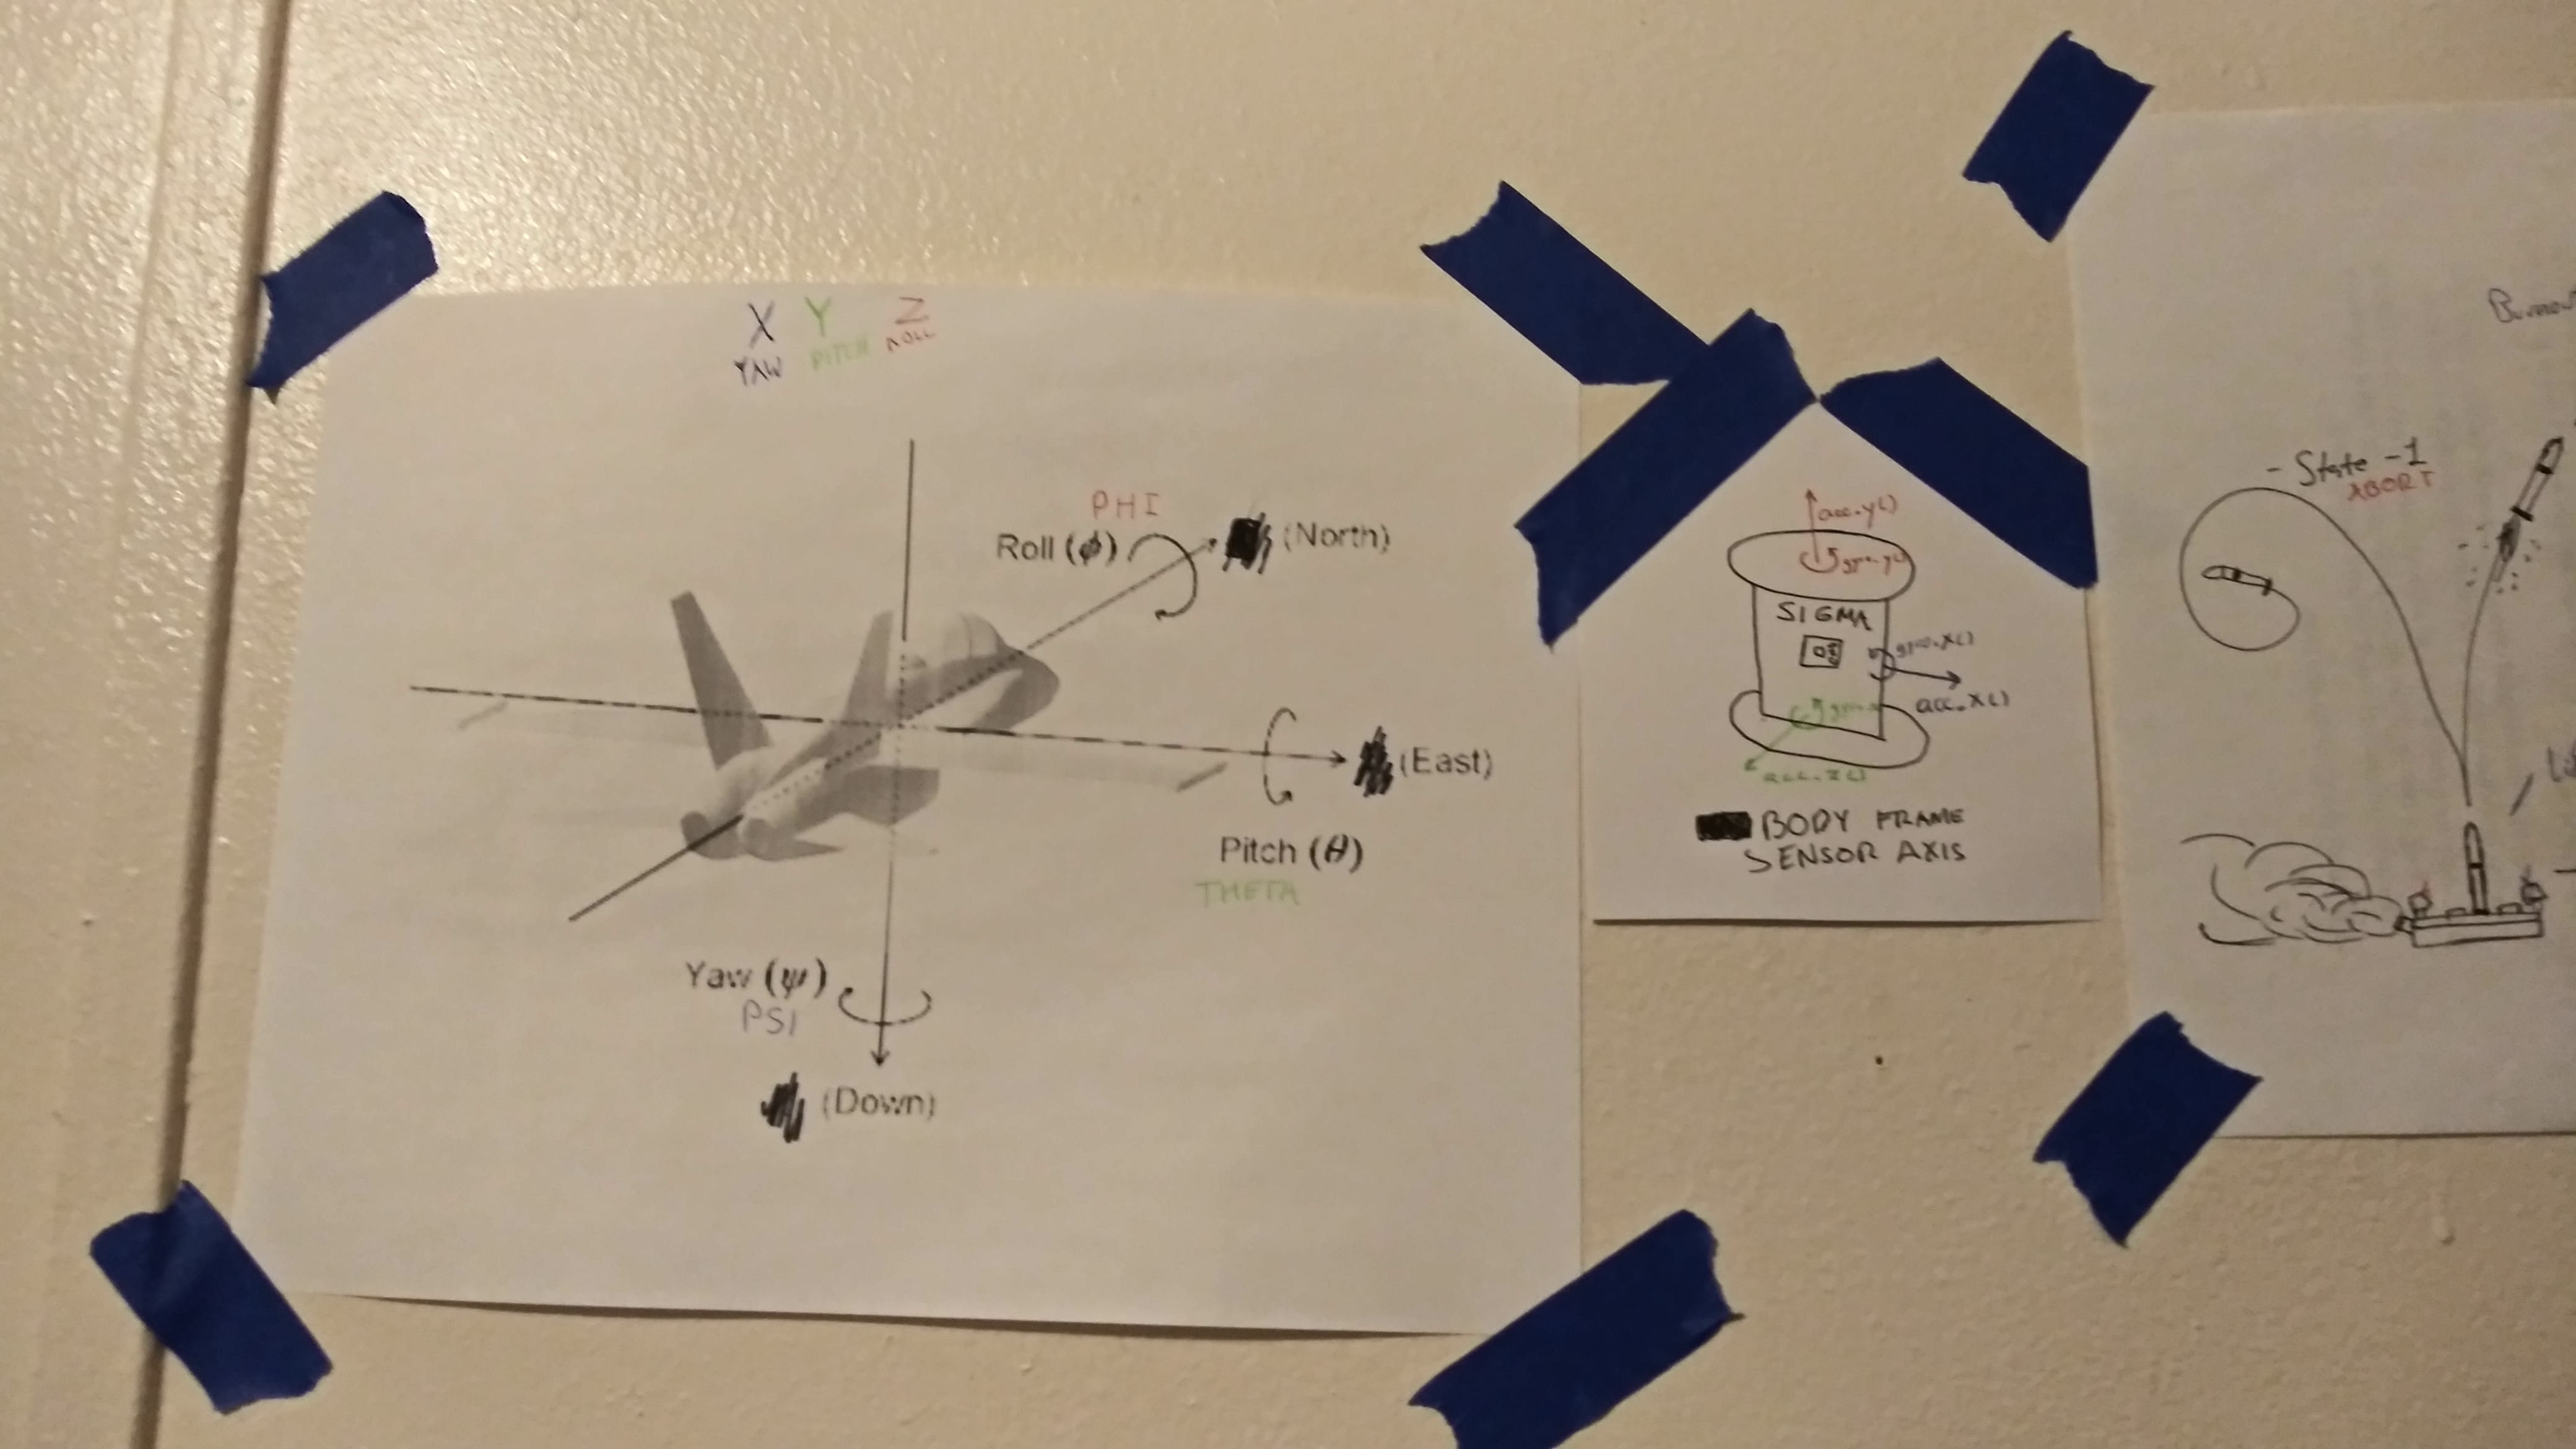 X Y Z
YAW PITCH ROLL
PHI
Roll (ϕ)
(North)
(East)
Pitch (θ)
THETA
Yaw (ψ)
PSI
(Down)
acc.y()
gyro.y()
SIGMA
gyro.x()
acc.x()
acc.z()
BODY FRAME
SENSOR AXIS
- State -1
ABORT